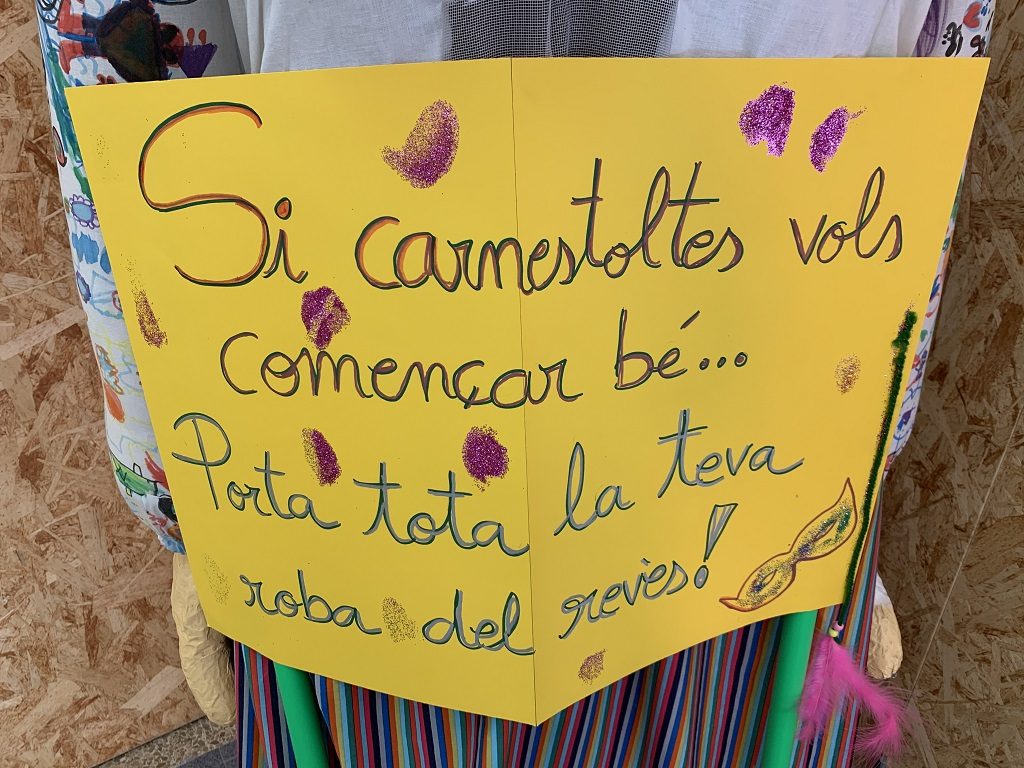 Si carnestoltes vols
començar bé...
Porta tota la teva
roba del revès!